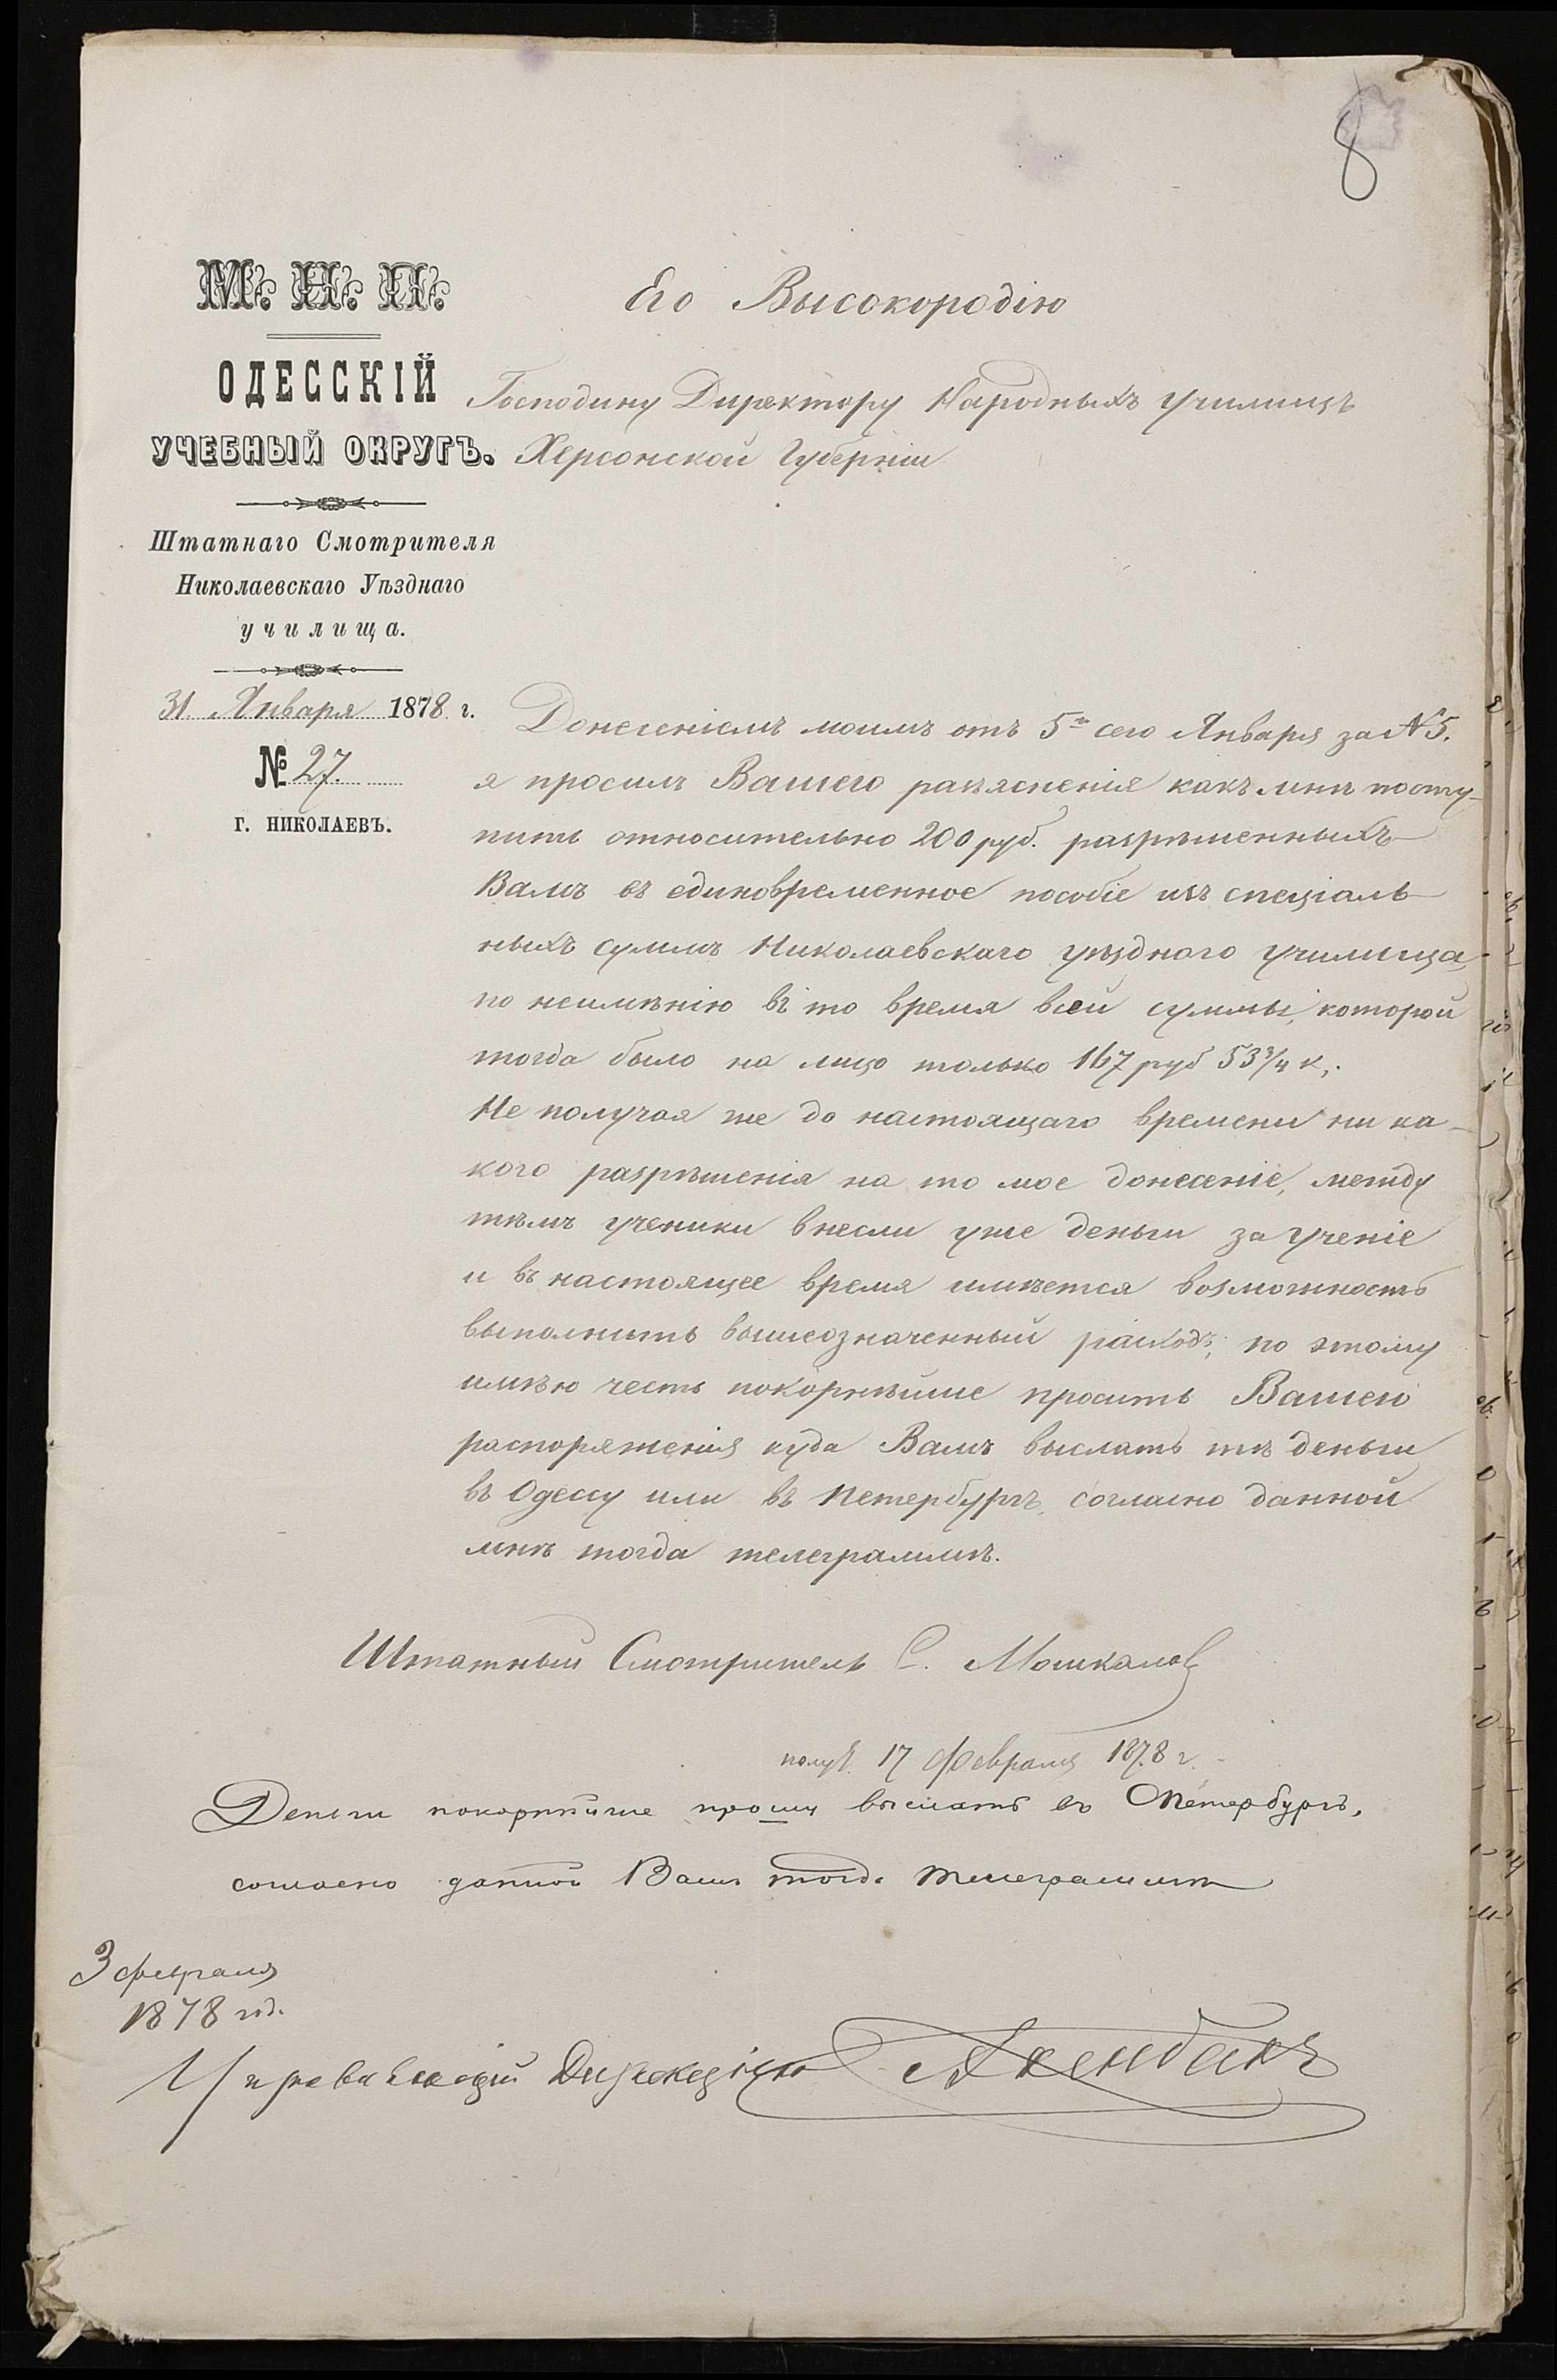 8
М. Н. П.
ОДЕССКІЙ
УЧЕБНЫЙ ОКРУГЪ.
Штатнаго Смотрителя
Николаевскаго Уѣзднаго
училища.
31 Января 1878 г.
№ 27.
г. НИКОЛАЕВЪ.
Его Высокородію
Господину Директору Народныхъ Училищъ
Херсонской Губерніи
Донесеніемъ моимъ отъ 5го сего Января за № 5.
я просилъ Вашего разъясненія какъ мнѣ посту-
пить относительно 200 руб. разрѣшенныхъ
Вамъ въ единовременное пособіе изъ спеціаль-
ныхъ суммъ Николаевскаго уѣзднаго училища,
по неимѣнію въ то время всей суммы, которой
тогда было на лицо только 167 руб 53 3/4 к.
Не получая же до настоящаго времени ни ка-
кого разрѣшенія на то мое донесеніе, между
тѣмъ ученики внесли уже деньги за ученіе
и въ настоящее время имѣется возможность
выполнить вышеозначенный расходъ, по этому
имѣю честь покорнѣйше просить Вашего
распоряженія куда Вамъ выслать тѣ деньги
въ Одессу или въ Петербургъ, согласно данной
мнѣ тогда телеграммѣ.
Штатный Смотритель С. Мошкалов
получ. 17 Февраля 1878 г.
Деньги покорнѣйше прошу выслать въ Петербургъ,
согласно данной Вамъ тогда телеграммѣ
3 февраля
1878 год.
Управляющій Дирекціею